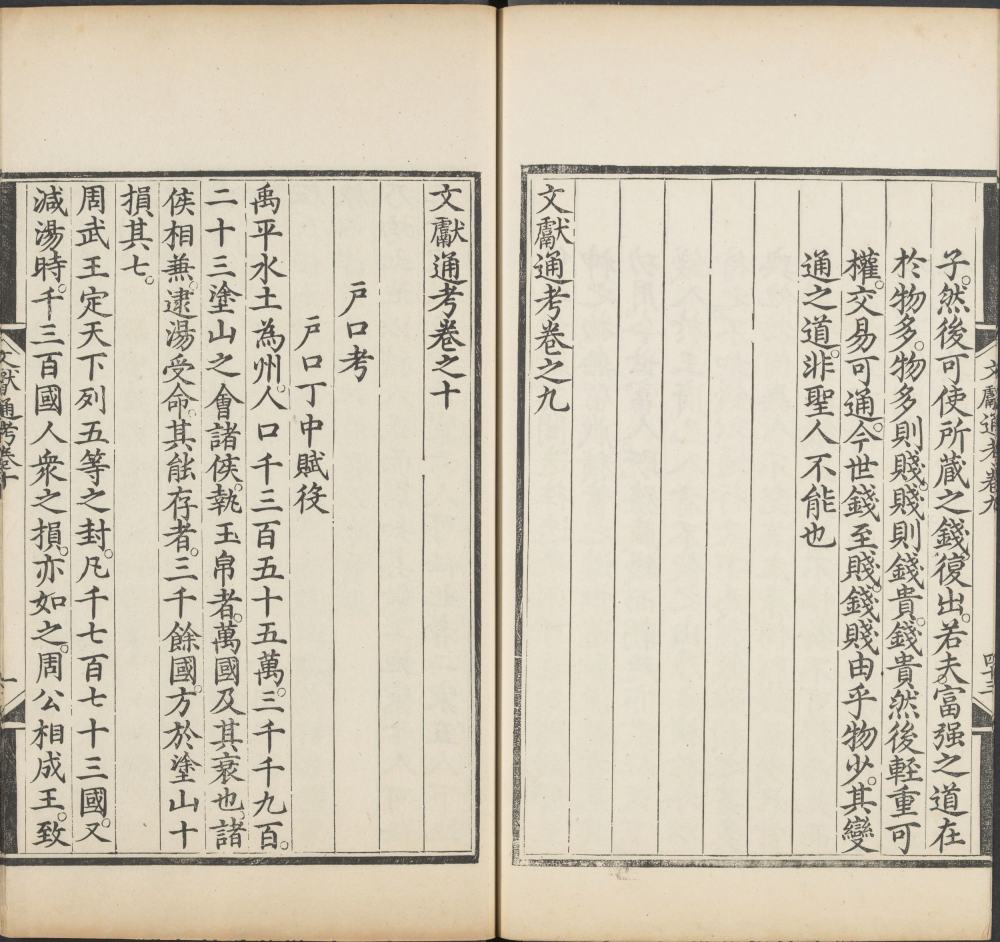 文獻通考卷九
四十三
子。然後可使所藏之錢復出。若夫富强之道在
於物多。物多則賤。賤則錢貴。錢貴然後輕重可
權。交易可通。今世錢至賤。錢賤由乎物少。其變
通之道。非聖人不能也
文獻通考卷之九
文獻通考卷之十
戶口考
戶口丁中賦役
禹平水土為州。人口千三百五十五萬。三千千九百。
二十三塗山之會諸侯。執玉帛者。萬國及其衰也。諸
侯相兼。逮湯受命。其能存者。三千餘國。方於塗山十
損其七。
周武王定天下列五等之封。凡千七百七十三國。又
减湯時。千三百國人衆之損。亦如之。周公相成王。致
文獻通考卷十
一